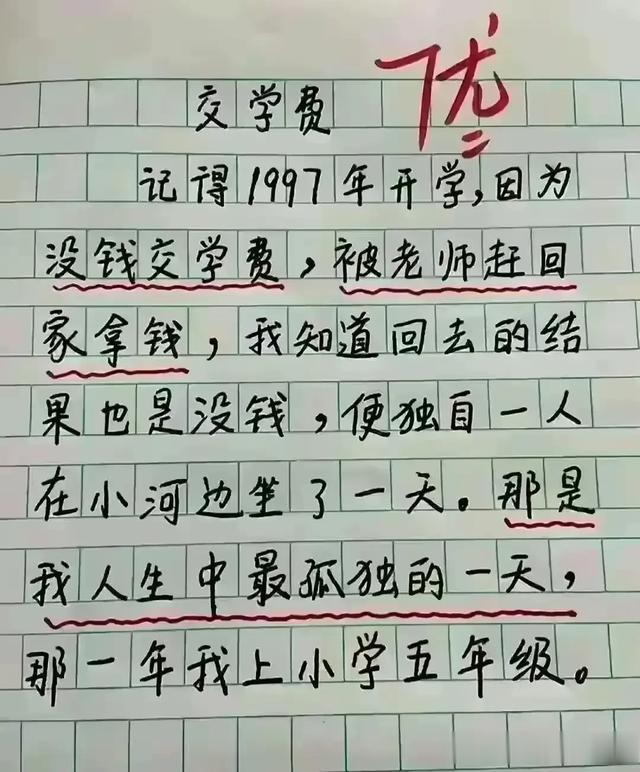 优
交学费
记得1997年开学,因为
没钱交学费,被老师赶回
家拿钱,我知道回去的结
果也是没钱,便独自一人
在小河边坐了一天。那是
我人生中最孤独的一天,
那一年我上小学五年级。